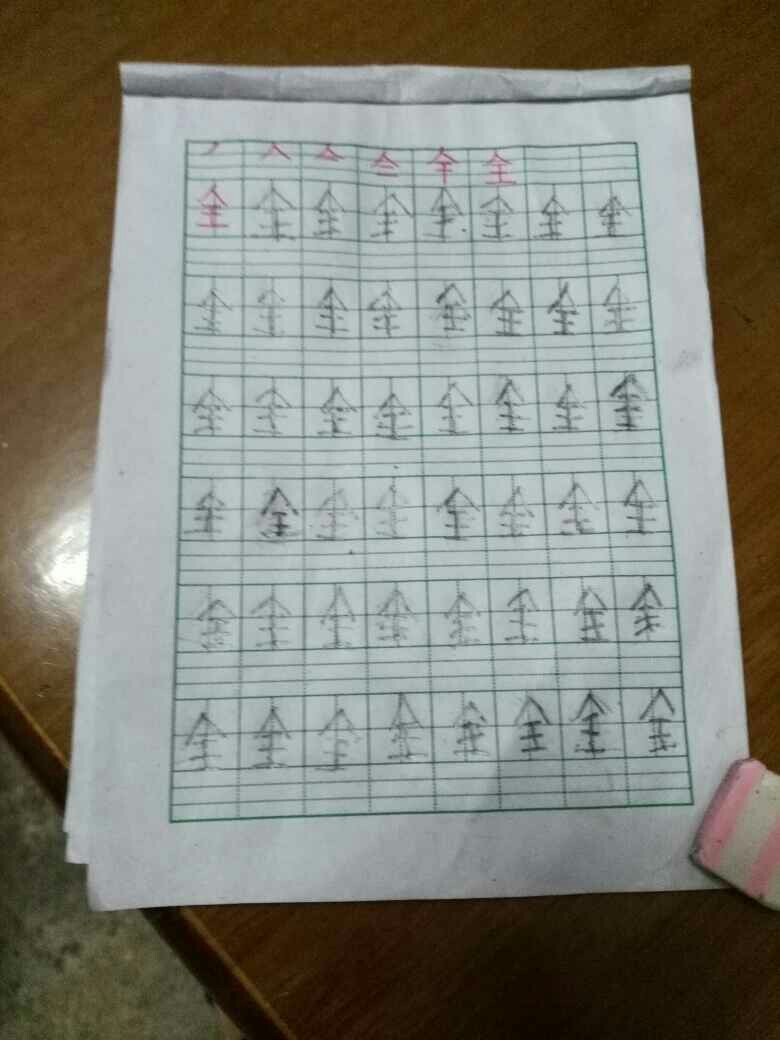 丿 人 亼 全
全 全 全 全 全 全 全 全
全 全 全 全 全 全 全 全
全 全 全 全 全 全 全 全
全 全 全 全 全 全 全 全
全 全 全 全 全 全 全 全
全 全 全 全 全 全 全 全